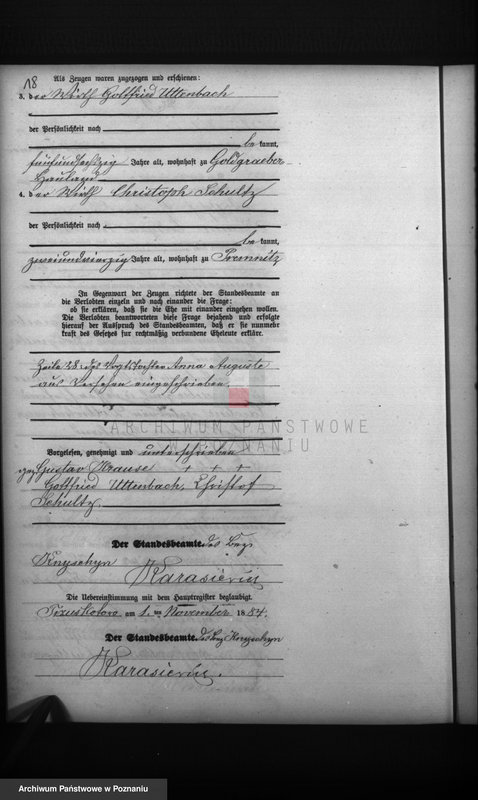 18
Als Zeugen waren zugezogen und erschienen:
3. der Wirth Gottfried Uttenbach
der Persönlichkeit nach
be kannt,
fünfundsechszig Jahre alt, wohnhaft zu Goldgraeber
Hauland
4. der Wirth Christoph Schultz
der Persönlichkeit nach
be kannt,
zweiundvierzig Jahre alt, wohnhaft zu Premnitz
In Gegenwart der Zeugen richtete der Standesbeamte an
die Verlobten einzeln und nach einander die Frage:
ob sie erklären, daß sie die Ehe mit einander eingehen wollen.
Die Verlobten beantworteten diese Frage bejahend und erfolgte
hierauf der Ausspruch des Standesbeamten, daß er sie nunmehr
kraft des Gesetzes für rechtmäßig verbundene Eheleute erkläre.
Zeile 28: des Vogts Tochter Anna Auguste
aus Versehen eingeschrieben.
ARCHIWUM PAŃSTWOWE
W POZNANIU
Vorgelesen, genehmigt und unterschrieben
gez. Gustav Krause + + +
Gottfried Uttenbach, Christof
Schultz.
Der Standesbeamte. des Bez.
Knyschyn
Karasiewicz
Die Uebereinstimmung mit dem Hauptregister beglaubigt.
am 1. ten November 1884.
Der Standesbeamte. des Bez. Knyschyn
Karasiewicz.
Archiwum Państwowe w Poznaniu